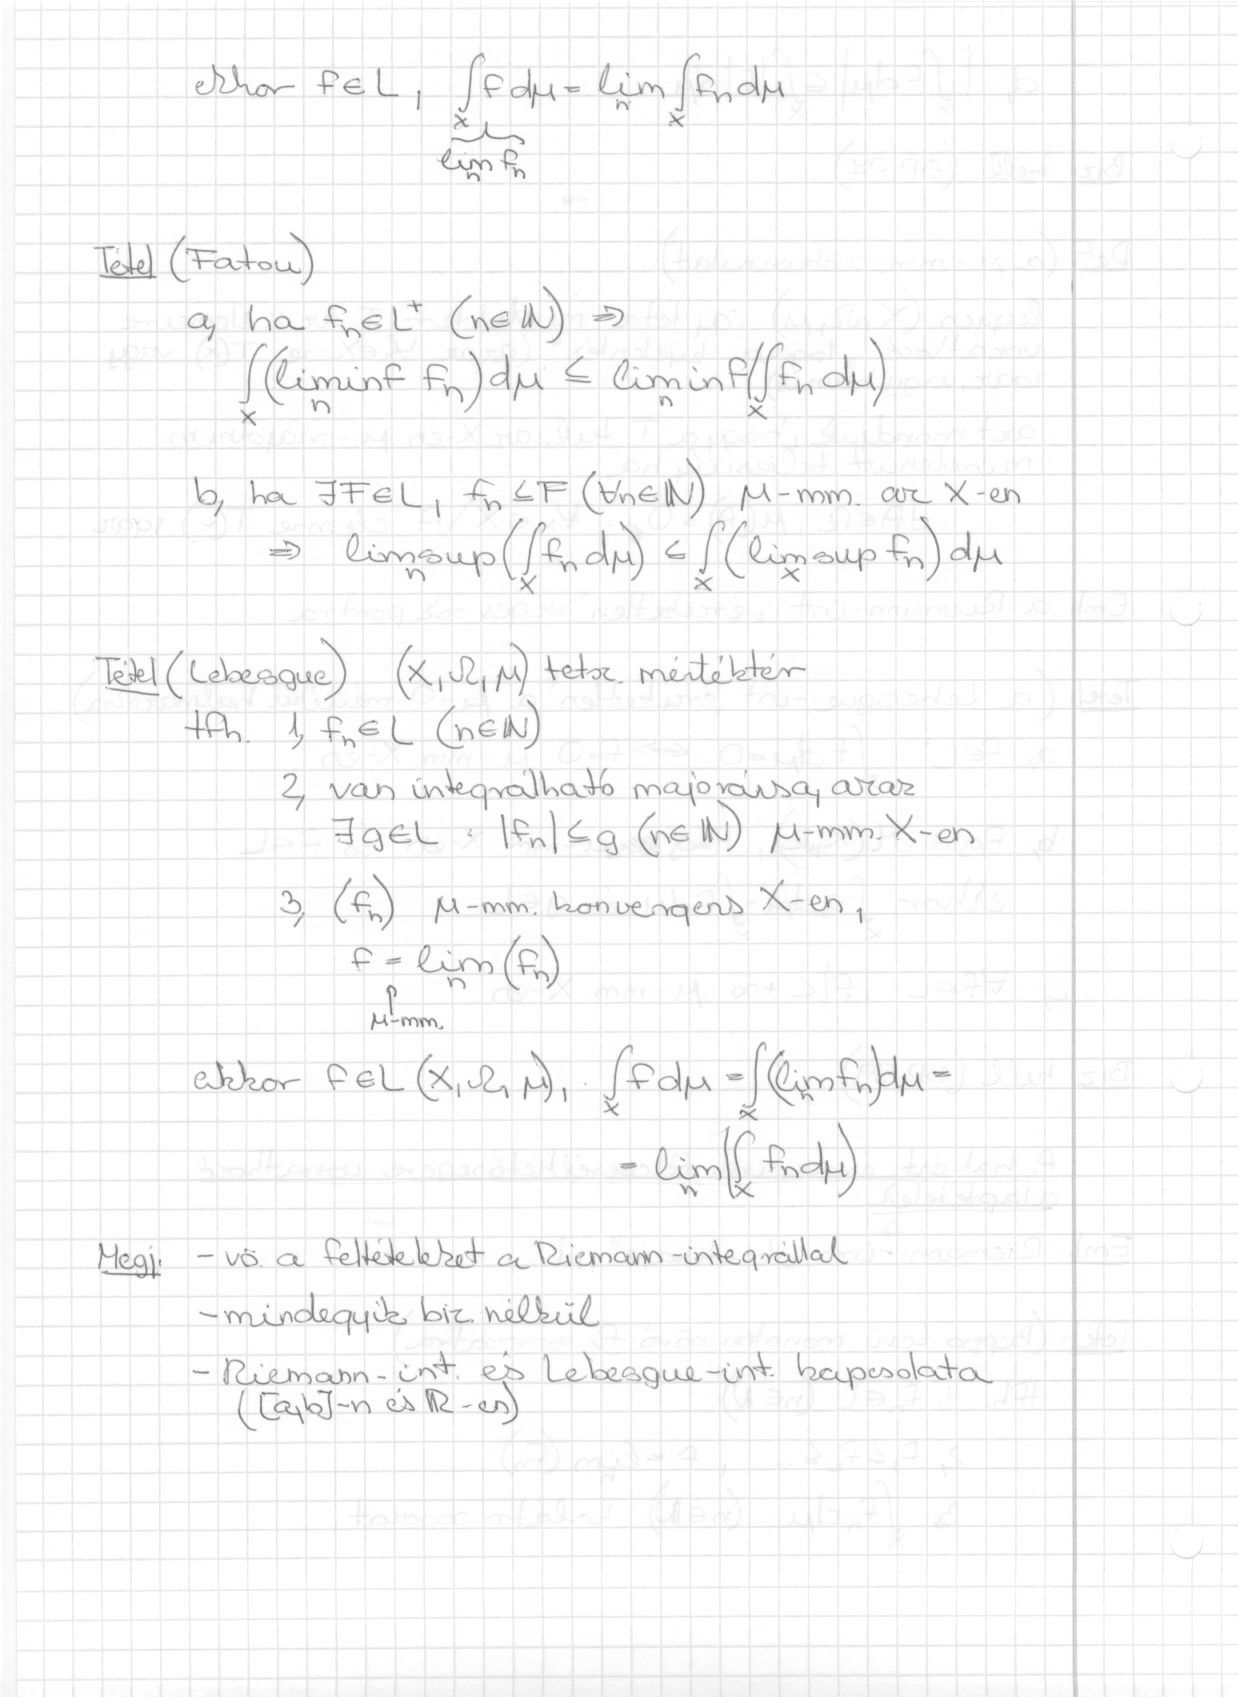 ekkor f ∈ L, ∫_X f dμ = lim_n ∫_X f_n dμ
lim_n f_n
Tétel (Fatou)
a, ha f_n ∈ L⁺ (n ∈ ℕ) ⇒
∫_X (liminf_n f_n) dμ ≤ liminf_n (∫_X f_n dμ)
b, ha ∃F ∈ L, f_n ≤ F (∀n ∈ ℕ) μ-mm. az X-en
⇒ limsup_n (∫_X f_n dμ) ≤ ∫_X (limsup_x f_n) dμ
Tétel (Lebesgue) (X, Ω, μ) tetsz. mértéktér
tfh. 1, f_n ∈ L (n ∈ ℕ)
2, van integrálható majoránsa, azaz
∃g ∈ L : |f_n| ≤ g (n ∈ ℕ) μ-mm. X-en
3, (f_n) μ-mm. konvergens X-en,
f = lim_n (f_n)
↑
μ-mm.
akkor f ∈ L (X, Ω, μ), ∫_X f dμ = ∫_X (lim_n f_n) dμ =
= lim_n (∫_X f_n dμ)
Megj: - vö. a feltételeket a Riemann-integrállal
- mindegyik biz. nélkül
- Riemann-int. és Lebesgue-int. kapcsolata
([a,b]-n és ℝ-en)